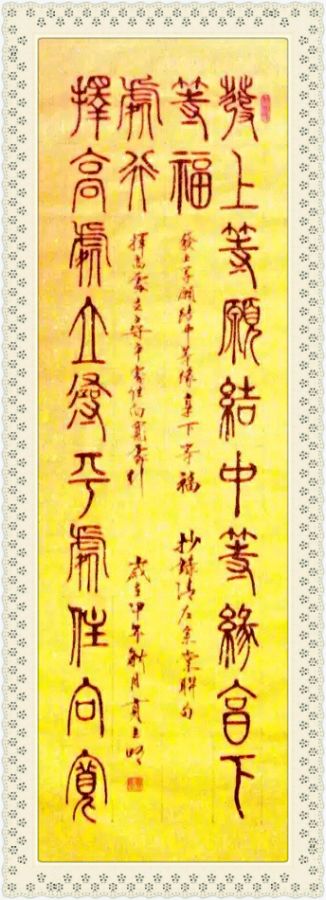 發上等願結中等緣享下
等福
擇高處立尋平處住向寬
處行
發上等願結中等緣享下等福 抄錄清左宗棠聯句
擇高處立尋平處住向寬處行
歲在甲午秋月